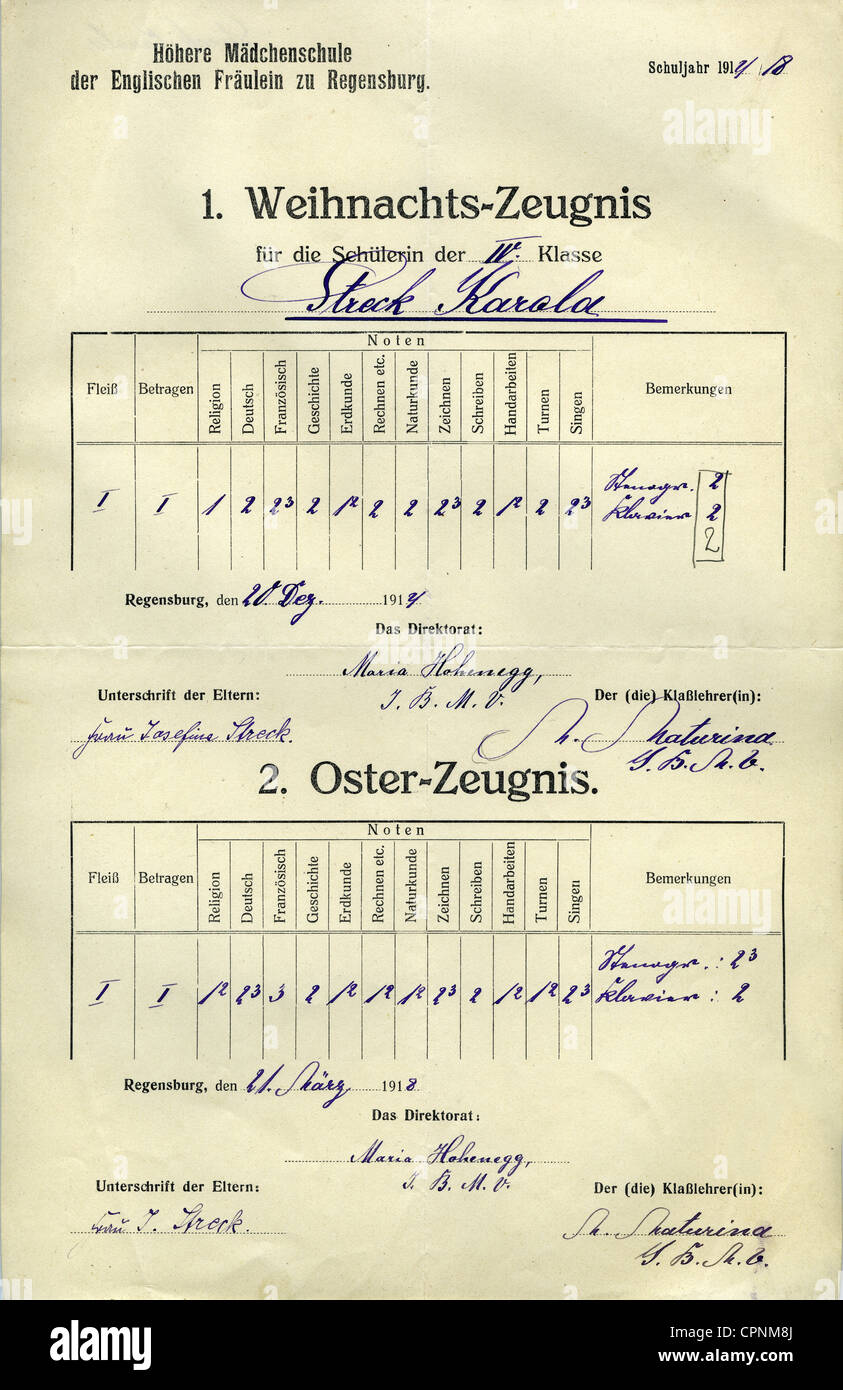 Höhere Mädchenschule
der Englischen Fräulein zu Regensburg.
Schuljahr 1917/18
1. Weihnachts-Zeugnis
für die Schülerin der IV. Klasse
Streck Karola
Noten
Fleiß Betragen Religion Deutsch Französisch Geschichte Erdkunde Rechnen etc. Naturkunde Zeichnen Schreiben Handarbeiten Turnen Singen Bemerkungen
I I 1 2 23 2 12 2 2 23 2 12 2 23
Stenogr. 2
Klavier 2
2
Regensburg, den 20. Dez. 1917
Das Direktorat:
Maria Hohenegg,
I. B. M. V.
Unterschrift der Eltern:
Der (die) Klaßlehrer(in):
Frau Josefine Streck.
M. Maturina
I. B. M. V.
2. Oster-Zeugnis.
Noten
Fleiß Betragen Religion Deutsch Französisch Geschichte Erdkunde Rechnen etc. Naturkunde Zeichnen Schreiben Handarbeiten Turnen Singen Bemerkungen
I I 12 23 3 2 12 12 12 23 2 12 12 23
Stenogr.: 23
Klavier: 2
Regensburg, den 21. März 1918
Das Direktorat:
Maria Hohenegg,
I. B. M. V.
Unterschrift der Eltern:
Der (die) Klaßlehrer(in):
Frau J. Streck.
M. Maturina
I. B. M. V.
alamy
Image ID: CPNM8J
www.alamy.com